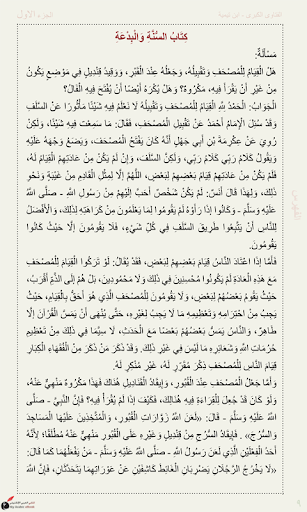 الفتاوى الكبرى - ابن تيمية
الجزء الأول
كِتَابُ السُّنَّةِ وَالْبِدْعَةِ
مَسْأَلَةٌ:
هَلْ الْقِيَامُ لِلْمُصْحَفِ وَتَقْبِيلُهُ، وَجَعْلُهُ عِنْدَ الْقَبْرِ، وَوَقِيدُ قِنْدِيلٍ فِي مَوْضِعٍ يَكُونُ
مِنْ غَيْرِ أَنْ يُقْرَأَ فِيهِ، مَكْرُوهٌ؟ وَهَلْ يُكْرَهُ أَيْضًا أَنْ يُفْتَحَ فِيهِ الْفَالُ؟
الْجَوَابُ: الْحَمْدُ لِلَّهِ الْقِيَامُ لِلْمُصْحَفِ وَتَقْبِيلُهُ لَا نَعْلَمُ فِيهِ شَيْئًا مَأْثُورًا عَنْ السَّلَفِ
وَقَدْ سُئِلَ الْإِمَامُ أَحْمَدُ عَنْ تَقْبِيلِ الْمُصْحَفِ، فَقَالَ: مَا سَمِعْت فِيهِ شَيْئًا، وَلَكِنْ
رُوِيَ عَنْ عِكْرِمَةَ بْنِ أَبِي جَهْلٍ أَنَّهُ كَانَ يَفْتَحُ الْمُصْحَفَ، وَيَضَعُ وَجْهَهُ عَلَيْهِ
وَيَقُولُ كَلَامُ رَبِّي كَلَامُ رَبِّي، وَلَكِنَّ السَّلَفَ، وَإِنْ لَمْ يَكُنْ مِنْ عَادَتِهِمْ الْقِيَامُ لَهُ،
فَلَمْ يَكُنْ مِنْ عَادَتِهِمْ قِيَامُ بَعْضِهِمْ لِبَعْضٍ، اللَّهُمَّ إلَّا لِمِثْلِ الْقَادِمِ مِنْ غَيْبَةٍ وَنَحْوِ
ذَلِكَ، وَلِهَذَا قَالَ أَنَسٌ: لَمْ يَكُنْ شَخْصٌ أَحَبَّ إلَيْهِمْ مِنْ رَسُولِ اللَّهِ - صَلَّى اللَّهُ
عَلَيْهِ وَسَلَّمَ - وَكَانُوا إذَا رَأَوْهُ لَمْ يَقُومُوا لِمَا يَعْلَمُونَ مِنْ كَرَاهَتِهِ لِذَلِكَ، وَالْأَفْضَلُ
لِلنَّاسِ أَنْ يَتَّبِعُوا طَرِيقَ السَّلَفِ فِي كُلِّ شَيْءٍ، فَلَا يَقُومُونَ إلَّا حَيْثُ كَانُوا
يَقُومُونَ.
فَأَمَّا إذَا اعْتَادَ النَّاسُ قِيَامَ بَعْضِهِمْ لِبَعْضٍ، فَقَدْ يُقَالُ: لَوْ تَرَكُوا الْقِيَامَ لِلْمُصْحَفِ
مَعَ هَذِهِ الْعَادَةِ لَمْ يَكُونُوا مُحْسِنِينَ فِي ذَلِكَ وَلَا مَحْمُودِينَ، بَلْ هُمْ إلَى الذَّمِّ أَقْرَبُ،
حَيْثُ يَقُومُ بَعْضُهُمْ لِبَعْضٍ، وَلَا يَقُومُونَ لِلْمُصْحَفِ الَّذِي هُوَ أَحَقُّ بِالْقِيَامِ، حَيْثُ
يَجِبُ مِنْ احْتِرَامِهِ وَتَعْظِيمِهِ مَا لَا يَجِبُ لِغَيْرِهِ، حَتَّى يُنْهَى أَنْ يَمَسَّ الْقُرْآنَ إلَّا
طَاهِرٌ، وَالنَّاسُ يَمَسُّ بَعْضُهُمْ بَعْضًا مَعَ الْحَدَثِ، لَا سِيَّمَا وَفِي ذَلِكَ مِنْ تَعْظِيمِ
حُرُمَاتِ اللَّهِ وَشَعَائِرِهِ مَا لَيْسَ فِي غَيْرِ ذَلِكَ، وَقَدْ ذَكَرَ مَنْ ذَكَرَ مِنْ الْفُقَهَاءِ الْكِبَارِ
قِيَامَ النَّاسِ لِلْمُصْحَفِ ذِكْرَ مُقَرِّرٍ لَهُ، غَيْرِ مُنْكِرٍ لَهُ.
وَأَمَّا جَعْلُ الْمُصْحَفِ عِنْدَ الْقُبُورِ، وَإِيقَادُ الْقَنَادِيلِ هُنَاكَ فَهَذَا مَكْرُوهٌ مَنْهِيٌّ عَنْهُ،
وَلَوْ كَانَ قَدْ جُعِلَ لِلْقِرَاءَةِ فِيهِ هُنَالِكَ، فَكَيْفَ إذَا لَمْ يُقْرَأْ فِيهِ؟ فَإِنَّ النَّبِيَّ - صَلَّى
اللَّهُ عَلَيْهِ وَسَلَّمَ - قَالَ: «لَعَنَ اللَّهُ زَوَّارَاتِ الْقُبُورِ، وَالْمُتَّخِذِينَ عَلَيْهَا الْمَسَاجِدَ
وَالسُّرُجَ» . فَإِيقَادُ السُّرُجِ مِنْ قِنْدِيلٍ وَغَيْرِهِ عَلَى الْقُبُورِ مَنْهِيٌّ عَنْهُ مُطْلَقًا؛ لِأَنَّهُ
أَحَدُ الْفِعْلَيْنِ الَّذِي لَعَنَ رَسُولُ اللَّهِ - صَلَّى اللَّهُ عَلَيْهِ وَسَلَّمَ - مَنْ يَفْعَلُهُمَا كَمَا قَالَ:
«لَا يَخْرُجُ الرَّجُلَانِ يَضْرِبَانِ الْغَائِطَ كَاشِفَيْنِ عَنْ عَوْرَاتِهِمَا يَتَحَدَّثَانِ، فَإِنَّ اللَّهَ
٩